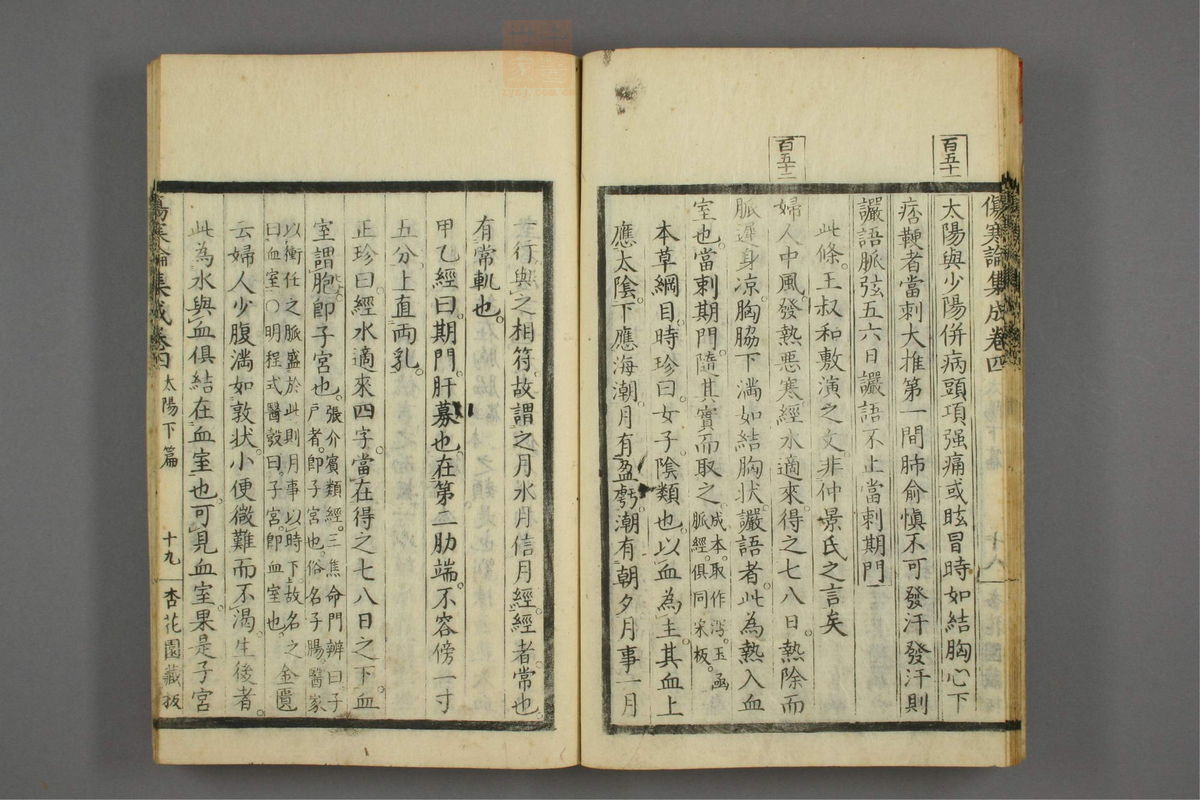 傷寒論集成卷四
百五十一
太陽與少陽併病頭項强痛或眩冒時如結胸心下
痞鞕者當刺大椎第一間肺俞愼不可發汗發汗則
讝語脈弦五六日讝語不止當刺期門
此條。王叔和敷演之文。非仲景氏之言矣
百五十二
婦人中風。發熱惡寒。經水適來。得之七八日。熱除而
脈遲身凉。胸脇下滿。如結胸狀。讝語者。此為熱入血
室也。當刺期門。隨其實而取之。成本。取作瀉。玉函
脈經。俱同宋板。
本草綱目。時珍曰。女子陰類也。以血為主。其血上
應太陰。下應海潮。月有盈虧。潮有朝夕。月事一月
一行。與之相符。故謂之月水月信月經。經者。常也。
有常軌也。
甲乙經曰。期門。肝募也。在第二肋端。不容傍一寸
五分。上直両乳。
正珍曰。經水適來四字。當在得之七八日之下。血
室謂胞。卽子宮也。張介賓類經。三焦命門辨曰。子
戶者。卽子宮也。俗名子腸。醫家
以衝任之脈盛於此。則月事以時下。故名之
曰血室。〇明程式醫彀曰。子宮。卽血室也。金匱
云。婦人少腹滿如敦狀。小便微難而不渴。生後者。
此為水與血俱結在血室也。可見血室果是子宮
傷寒論集成卷四 太陽下篇 十九 杏花園藏板